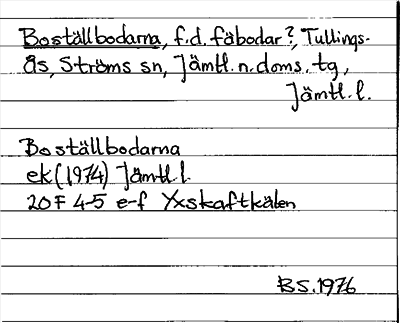 Boställbodarna, f.d. fäbodar?, Tullings-
ås, Ströms sn, Jämtl. n. doms. tg,
Jämtl. l.
Boställbodarna
ek (1974) Jämtl. l.
20F 4-5 e-f Yxskaftkälen
BS. 1976